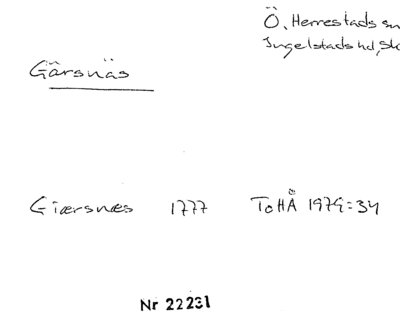 Ö. Herrestads sn
Ingelstads hd, Sk
Gärsnäs
Giærsnæs 1777 ToHÅ 1979:34
Nr 22231